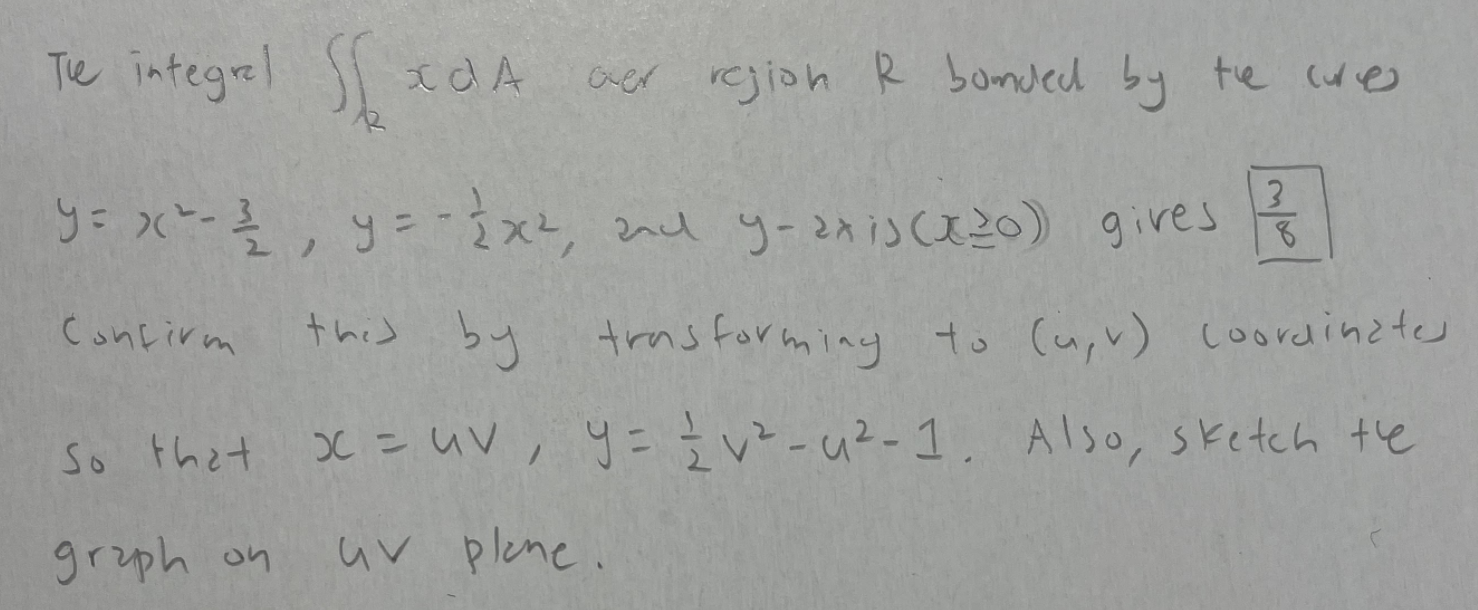 The integral ∬_R x dA over region R bounded by the curves
y = x² - 3/2, y = -1/2 x², and y-axis (x≥0) gives 3/8
Confirm this by transforming to (u,v) coordinates
so that x = uv, y = 1/2 v² - u² - 1. Also, sketch the
graph on uv plane.